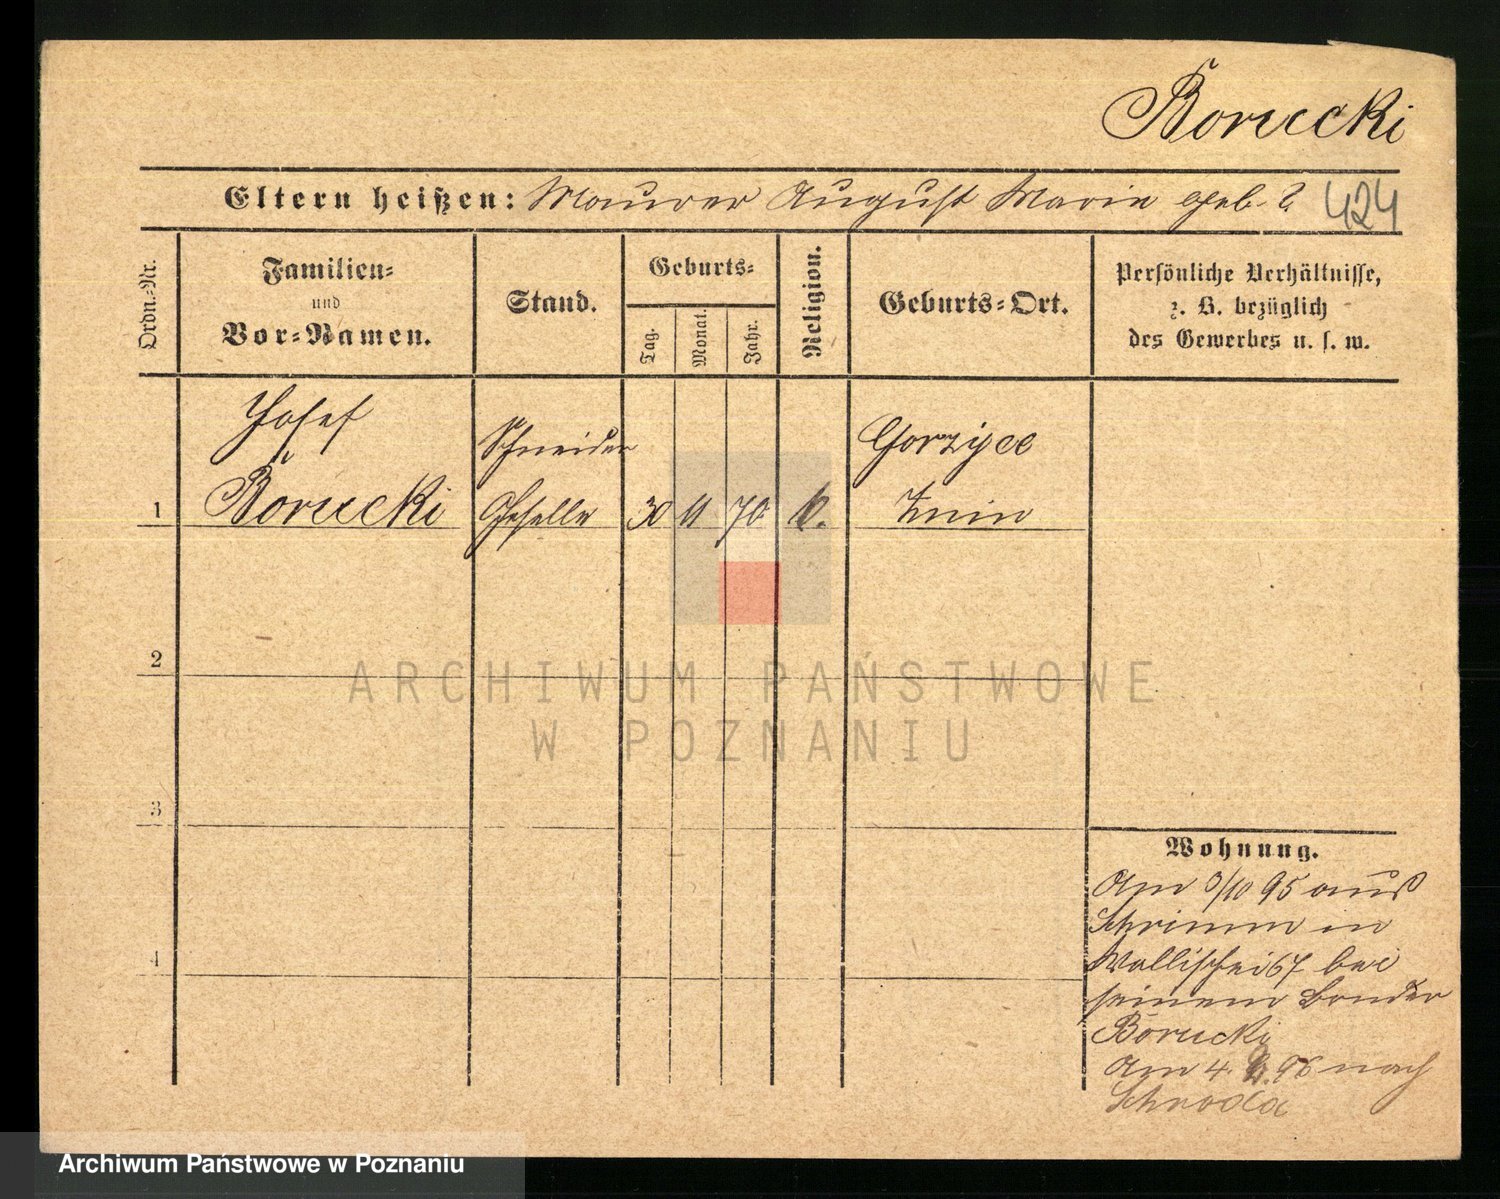 Borucki
Eltern heißen: Maurer August Marie geb. ? 424
Ordn.-Nr.
Familien-
und
Vor-Namen.
Stand.
Geburts-
Tag.
Monat.
Jahr.
Religion.
Geburts-Ort.
Persönliche Verhältnisse,
z. B. bezüglich
des Gewerbes u. s. w.
Josef
Schneider
Gorzyce
1 Borucki Geselle 30 11 70 k. Znin
2
3
4
ARCHIWUM PAŃSTWOWE
W POZNANIU
Wohnung.
Am 3/10 95 aus
Schrimm in
Wallischei 67 bei
seinem Bruder
Borucki
Am 4. 96 nach
Schroda
Archiwum Państwowe w Poznaniu